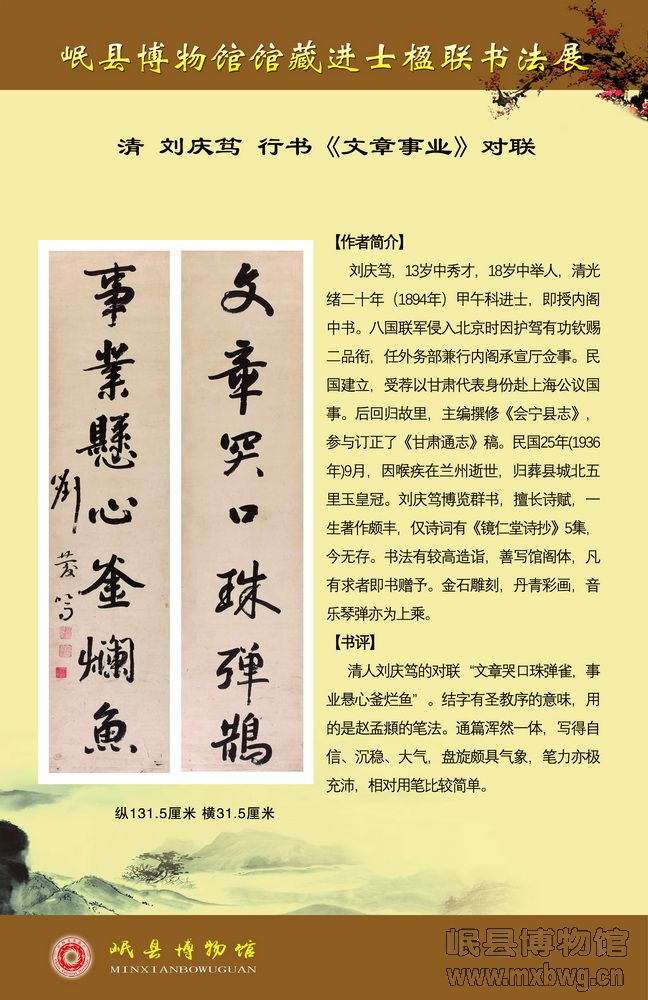 岷县博物馆馆藏进士楹联书法展
清 刘庆笃 行书《文章事业》对联
文章哭口珠彈鵲
事業懸心釜爛魚
劉慶篤
纵131.5厘米 横31.5厘米
【作者简介】
刘庆笃，13岁中秀才，18岁中举人，清光
绪二十年（1894年）甲午科进士，即授内阁
中书。八国联军侵入北京时因护驾有功钦赐
二品衔，任外务部兼行内阁承宣厅佥事。民
国建立，受荐以甘肃代表身份赴上海公议国
事。后回归故里，主编撰修《会宁县志》，
参与订正了《甘肃通志》稿。民国25年(1936
年)9月，因喉疾在兰州逝世，归葬县城北五
里玉皇冠。刘庆笃博览群书，擅长诗赋，一
生著作颇丰，仅诗词有《镜仁堂诗抄》5集，
今无存。书法有较高造诣，善写馆阁体，凡
有求者即书赠予。金石雕刻，丹青彩画，音
乐琴弹亦为上乘。
【书评】
清人刘庆笃的对联“文章哭口珠弹雀，事
业悬心釜烂鱼”。结字有圣教序的意味，用
的是赵孟頫的笔法。通篇浑然一体，写得自
信、沉稳、大气，盘旋颇具气象，笔力亦极
充沛，相对用笔比较简单。
岷县博物馆
MINXIANBOWUGUAN
岷县博物馆
www.mxbwg.cn